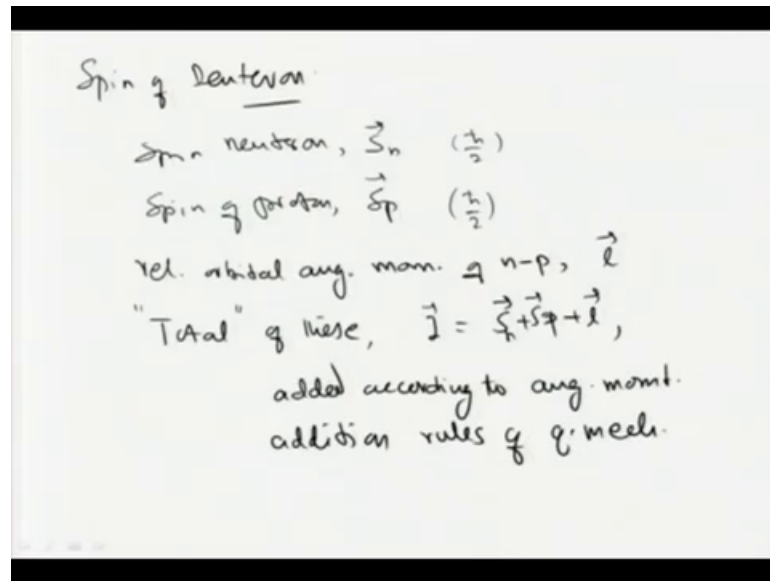 Spin of Deuteron
Spin neutron, S⃗n (ħ/2)
Spin of proton, S⃗p (ħ/2)
rel. orbital ang. mom. of n-p, l⃗
"Total" of these, J⃗ = S⃗n+S⃗p+l⃗,
added according to ang. momt.
addition rules of q. mech.